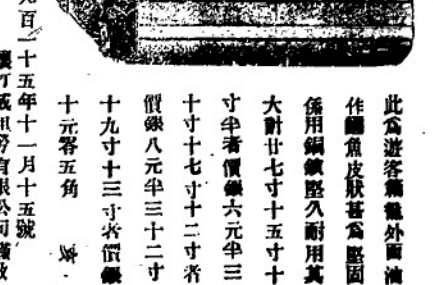 此為遊客籐籠外面油
作鱷魚皮狀甚為堅固
係用銅鑲堅久耐用其
大計廿七寸十五寸十
寸半者價銀六元半三
十寸十七寸十二寸者
價銀八元半三十二寸
十九寸十三寸者價銀
十元零五角
百一十五年十一月十五號
有限公司謹啟